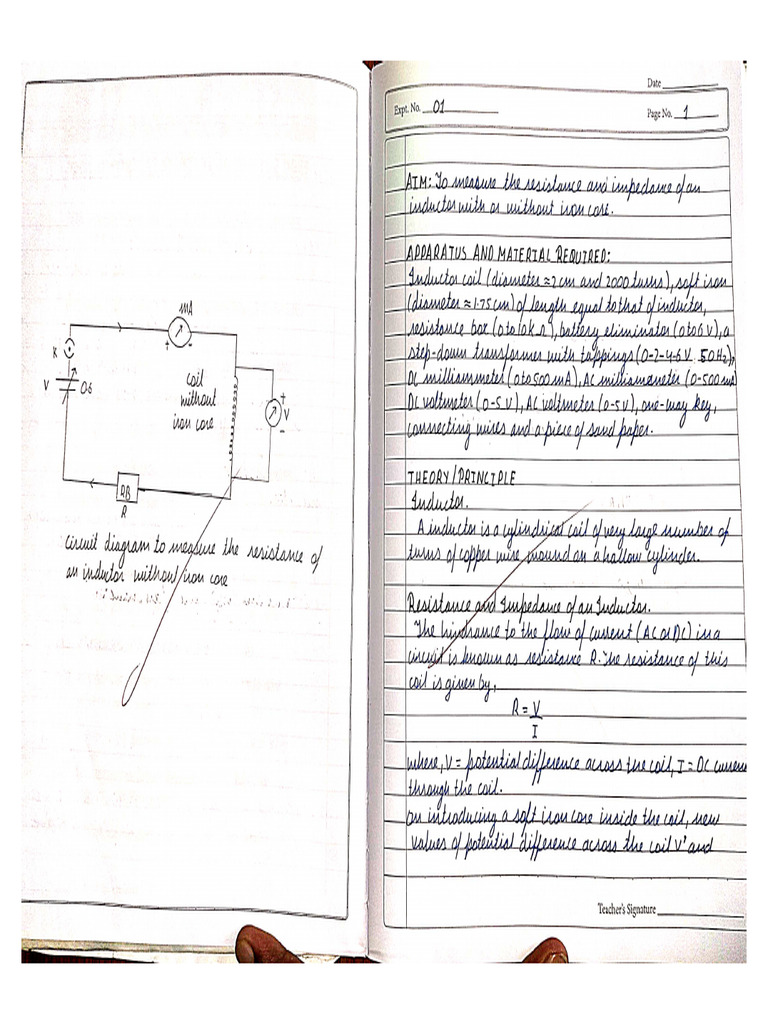 mA
+ -
K
V
0-6
coil
without
iron core
+
V
-
RB
R
Circuit diagram to measure the resistance of
an inductor without iron core
Date
Expt. No. 01
Page No. 1
AIM: To measure the resistance and impedance of an
inductor with or without iron core.
APPARATUS AND MATERIAL REQUIRED:
Inductor coil (diameter ≈ 2 cm and 2000 turns), soft iron
(diameter ≈ 1.75 cm) of length equal to that of inductor,
resistance box (0 to 10k Ω), battery eliminator (0 to 6 V), a
step-down transformer with tappings (0-2-4-6 V 50Hz),
DC milliammeter (0 to 500 mA), AC milliammeter (0-500 mA)
DC voltmeter (0-5 V), AC voltmeter (0-5 V), one-way key,
connecting wires and a piece of sand paper.
THEORY/PRINCIPLE
Inductor.
A inductor is a cylindrical coil of very large number of
turns of copper wire wound on a hallow cylinder.
Resistance and Impedance of an Inductor.
The hindrance to the flow of current (AC or DC) in a
circuit is known as resistance R. The resistance of this
coil is given by,
R = V
I
where, V = potential difference across the coil, I = DC current
through the coil.
On introducing a soft iron core inside the coil, new
values of potential difference across the coil V' and
Teacher's Signature